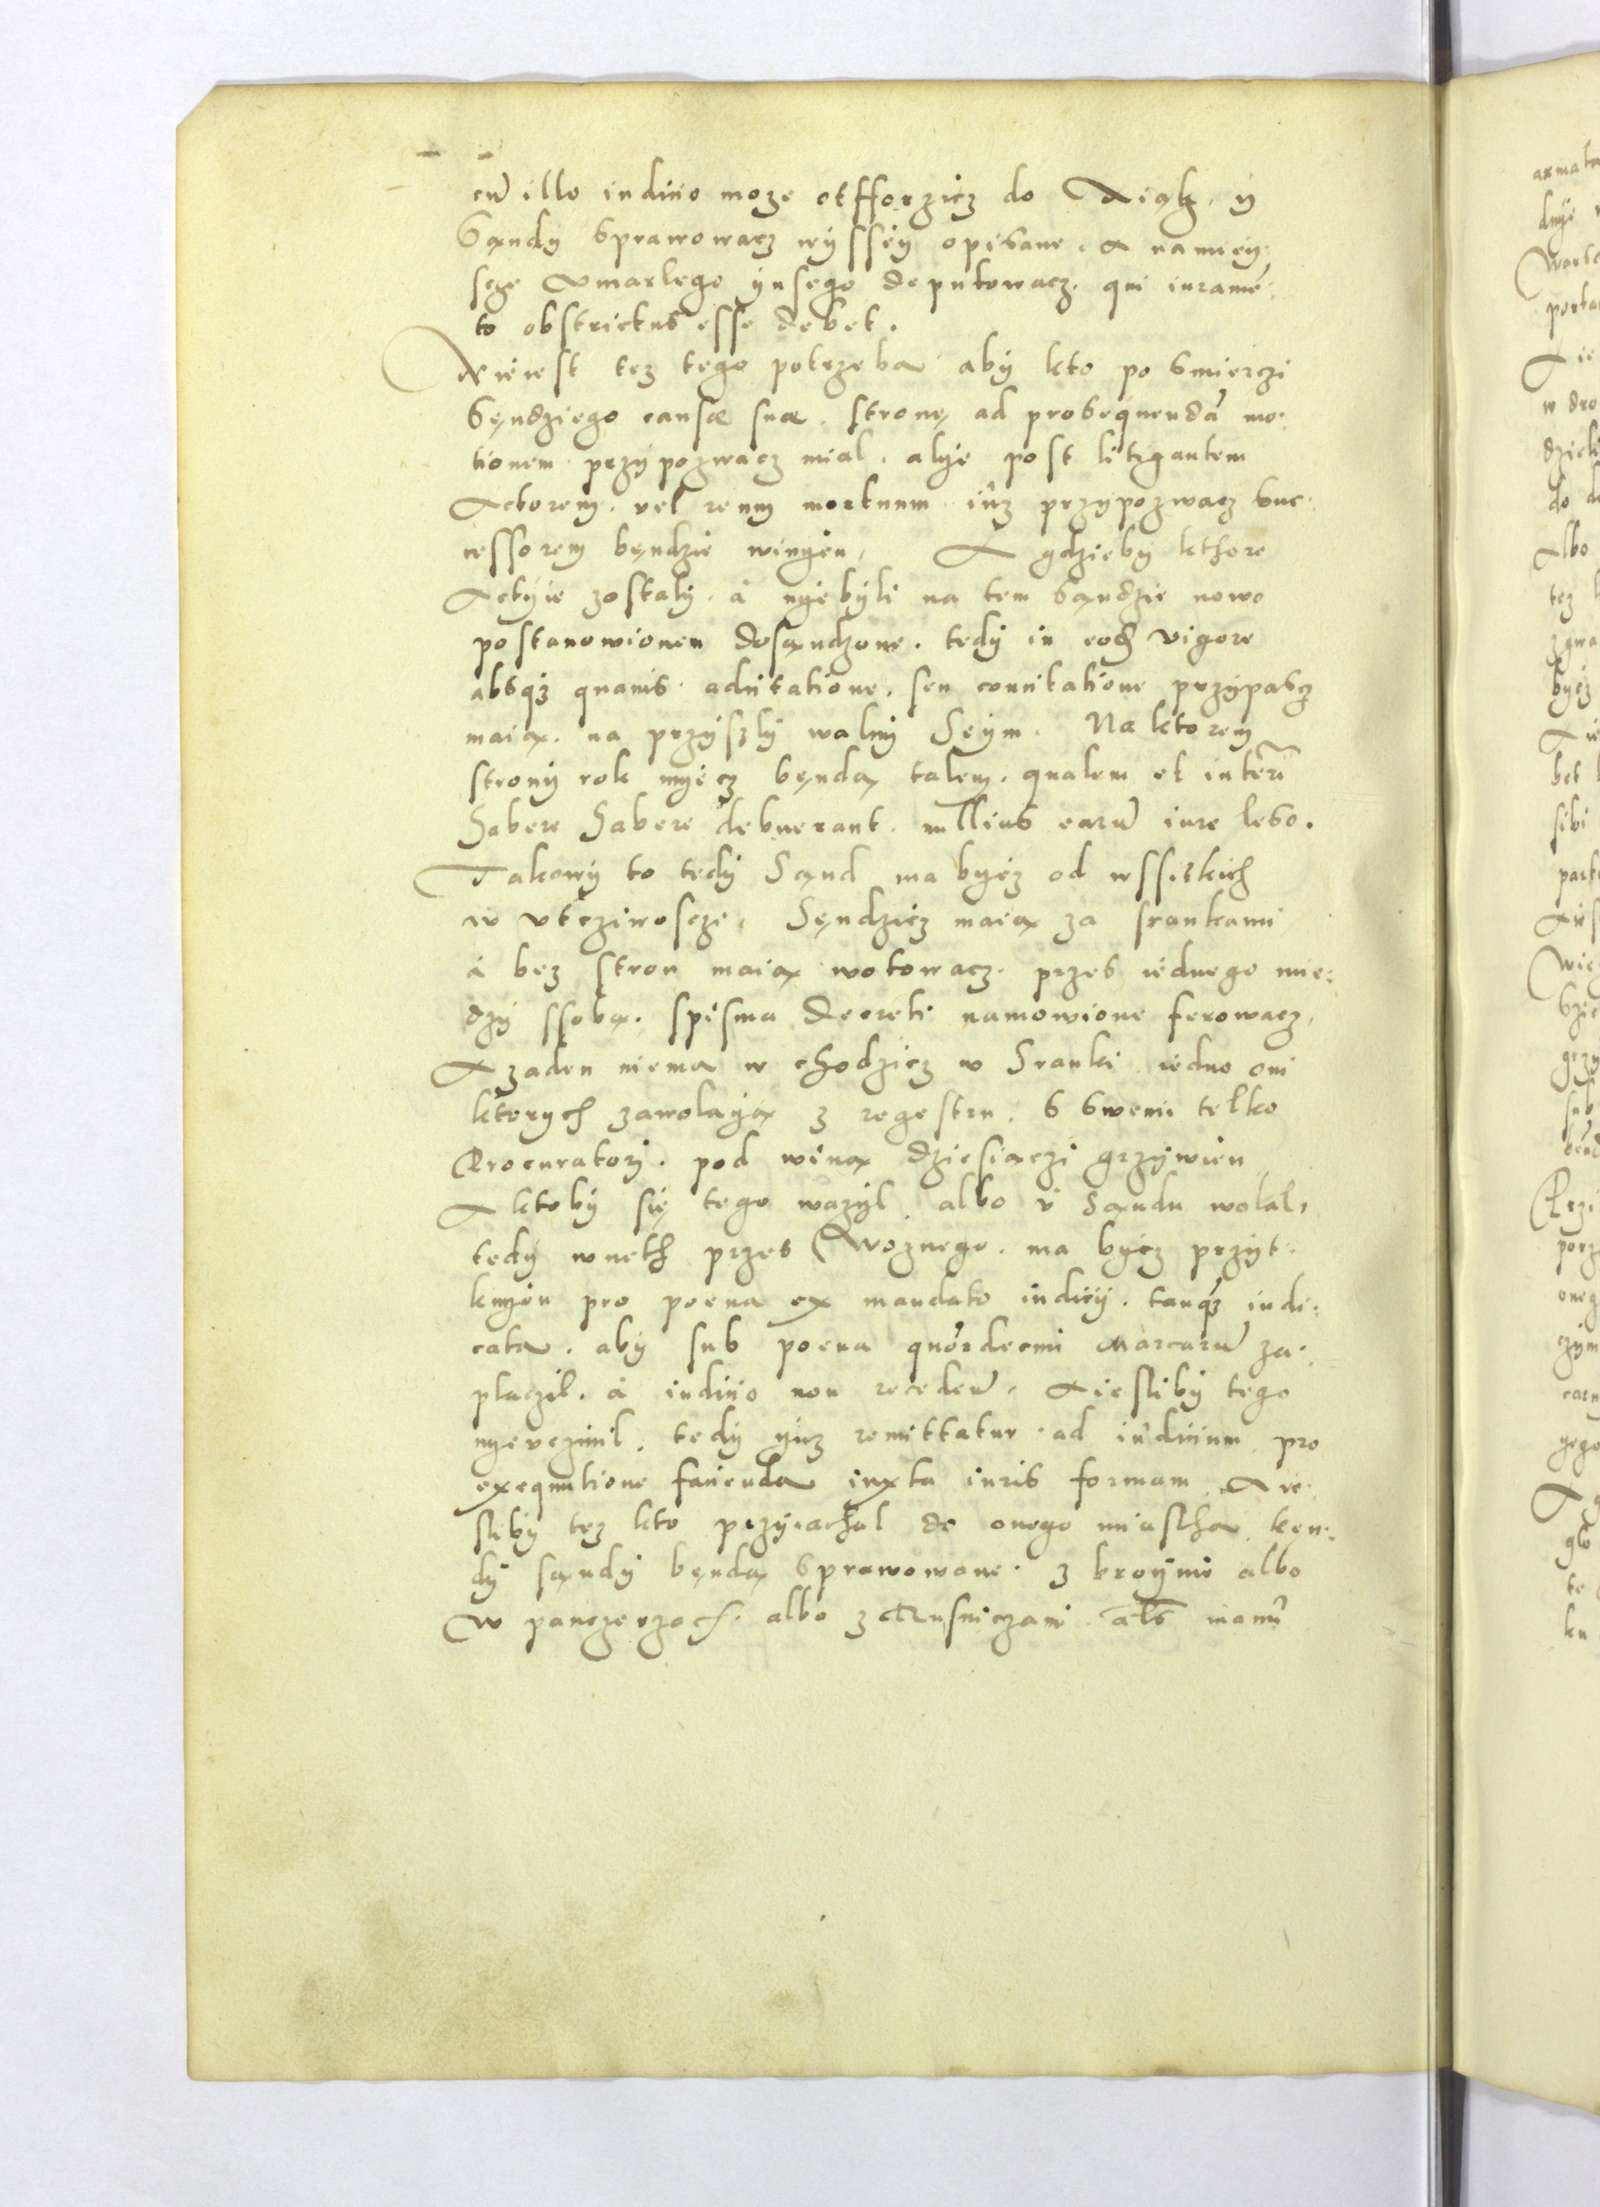 cũ illo iudiio moze otfforzicz do Xiąk, ÿ
Sąndÿ sprawowacz wÿssëÿ opisane. a namieÿ:
scze Vmarlego ÿnsego deputowacz. qui iurame:
to obstrictus esse debet.
Niëiest tez tego potrzeba abÿ kto po smierczi
Sęndziego causæ suæ. stronę ad prosequendã mo:
tionem przÿpozwacz mial. alÿe post litigantem
Actorem. vel reum mortuum iuz przÿpozwacz suc:
cessorem będzie winyen, A gdziebÿ kthore
Actÿie zostalÿ. à nyebÿli na tem sąndzie nowo
postanowionem dosąndzone. tedÿ in eod vigore
absq3 quavis aduitatione. seu connitatione przÿpascz
maią. na przÿszlÿ walnÿ Seÿm. Na ktorem
stronÿ rok myecz bęndą talem. qualem et interĩ
habere habere debuerant. nullius earũ iure leso.
Takowÿ to tedÿ Sąnd ma bÿcz od wssitkich
w vtcziwoscze, Sęndzicz maią za srankami
à bez stron maią wotowacz. przes iednego mie:
dzÿ ssobą. spisma Decreti namowione ferowacz,
A zaden niema w chodzicz w Sranki iedno oni
ktorych zawolaÿą z regestru. s swemi telko
Procuratorÿ. pod winą dziesiączi grzÿwien
A ktobÿ się tego wazÿl. albo v Sąndu wolal,
tedÿ wneth przes Woznego. ma bÿcz przÿt:
knyon pro poena ex mandato iudicÿ. tanq3 iudi:
cata. abÿ sub poena quordecimi Marcarũ za:
placzil. à iudiio non recedẽ, A iesliby tego
nyevczinil. tedÿ yuz remittatur ad iudicium pro
exequutione facienda iuxta iuris formam. A ie:
slibÿ tez kto przÿiachal do onego miastha kęn:
dÿ sąndÿ bęndą sprawowane. z broÿmi albo
W panczerzach. albo z Rusniczami als manũ